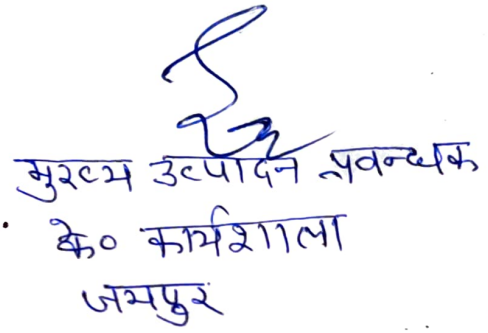 मुख्य उत्पादन प्रबन्धक
के० कार्यशाला
जयपुर